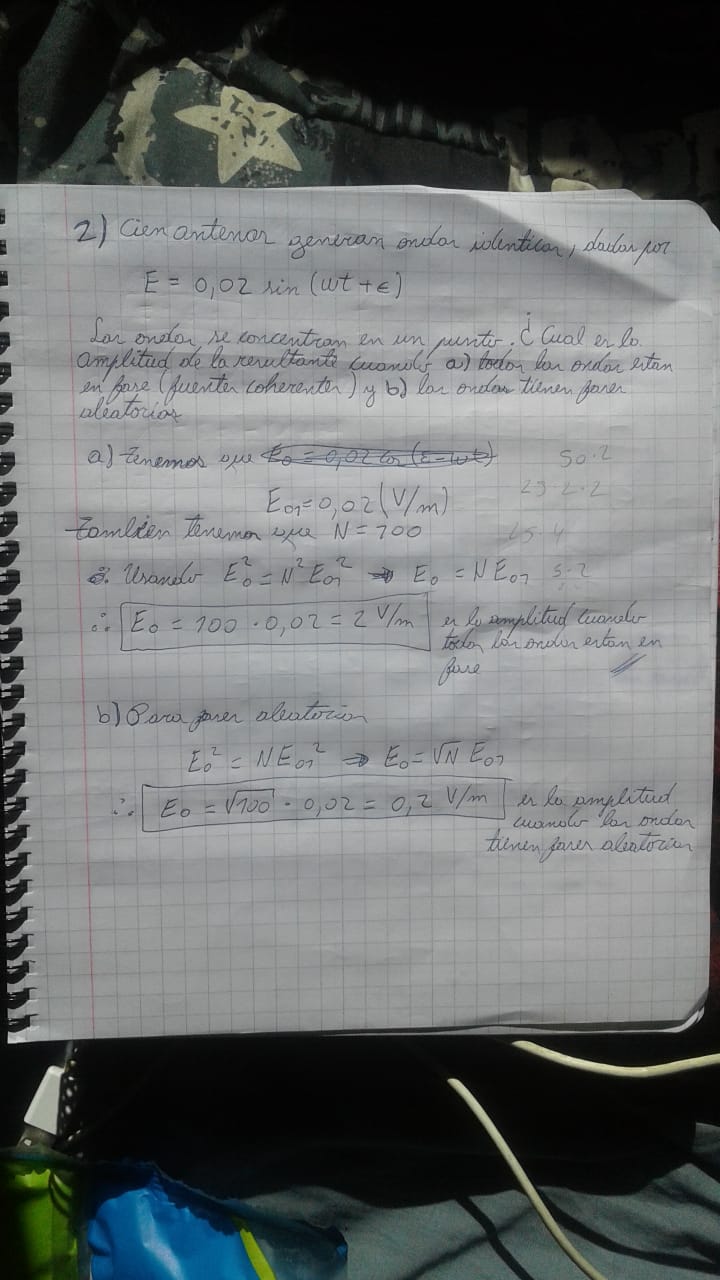 2) Cien antenas generan ondas identicas, dadas por
E = 0,02 sin (wt + ε)
Las ondas, se concentran en un punto. ¿ Cual es la
amplitud de la resultante cuando a) todas las ondas estan
en fase (fuentes coherentes) y b) las ondas tienen fases
aleatorias
a) tenemos que E₀ = 0,02 cos (ε - wt)
50·2
E₀₁ = 0,02 (V/m)
25·2·2
tambien tenemos que N = 100
25·4
∴ Usando E₀² = N² E₀₁² ⇒ E₀ = N E₀₁
5·2
∴ E₀ = 100 · 0,02 = 2 V/m es la amplitud cuando
todas las ondas estan en
fase
b) Para fases aleatorias
E₀² = N E₀₁² ⇒ E₀ = √N E₀₁
∴ E₀ = √100 · 0,02 = 0,2 V/m es la amplitud
cuando las ondas
tienen fases aleatorias